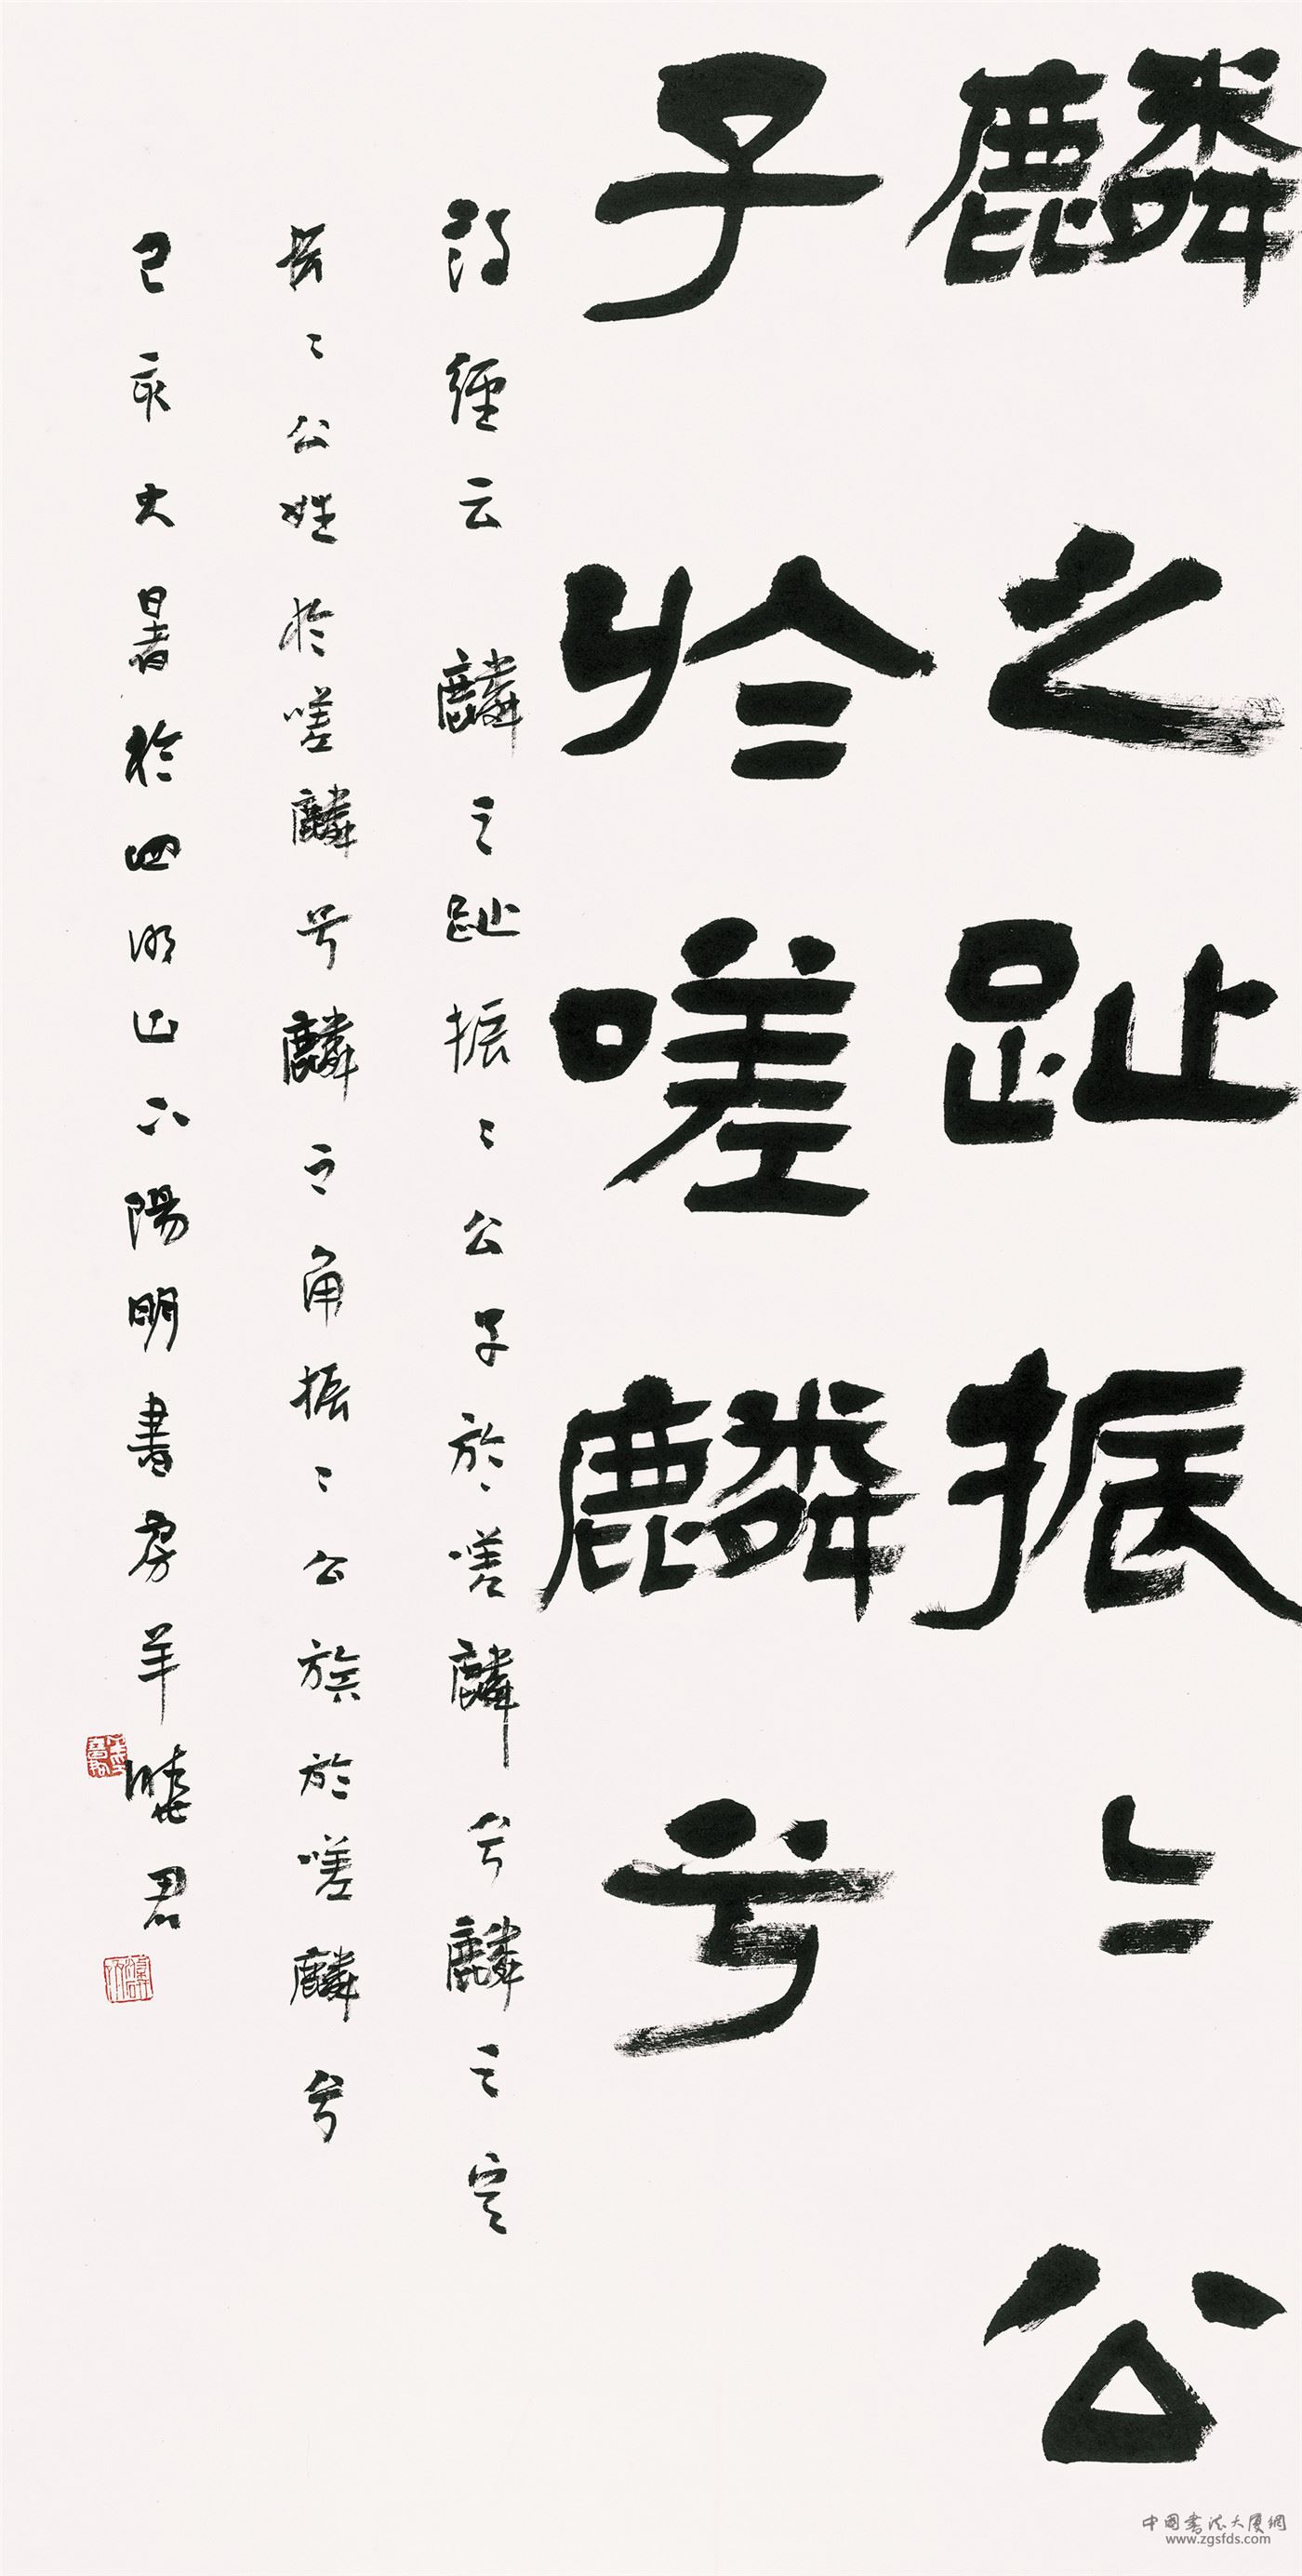 麟之趾振〻公
子於嗟麟兮
詩經云麟之趾振〻公子於嗟麟兮麟之定
振〻公姓於嗟麟兮麟之角振〻公族於嗟麟兮
己亥大暑於四明山下陽明書房羊曉君
中国书法大厦網
www.zgsfds.com